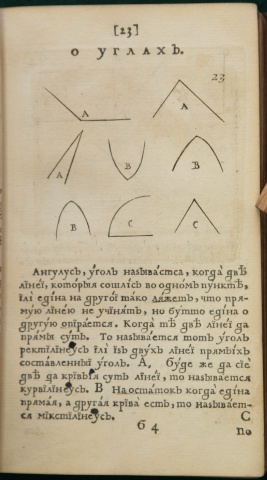 [23]
О УГЛАХЪ.
23
A
A
A
B
B
B
C
C
Ангулусъ, уголъ называется, когда двѣ
лїнеї, которыя сошлїсь во одномъ пунктѣ,
їлї едїна на другої тако ляжетъ, что пря-
мую лїнею не учїнятъ, но бутто едїна о
другую опїрается. Когда тѣ двѣ лїнеї да
прямїя суть. То называется тотъ уголъ
ректїлїнеусъ їлї їзъ двухъ лїнеї прямыхъ
составленныї уголъ. A, буде же да сїе
двѣ да крївыя суть лїнеї, то называется
курвїлїнеусъ. B На остатокъ когда едїна
прямая, а другая крїва есть, то называет-
ся мїкстїлїнеусъ. C
б 4
по